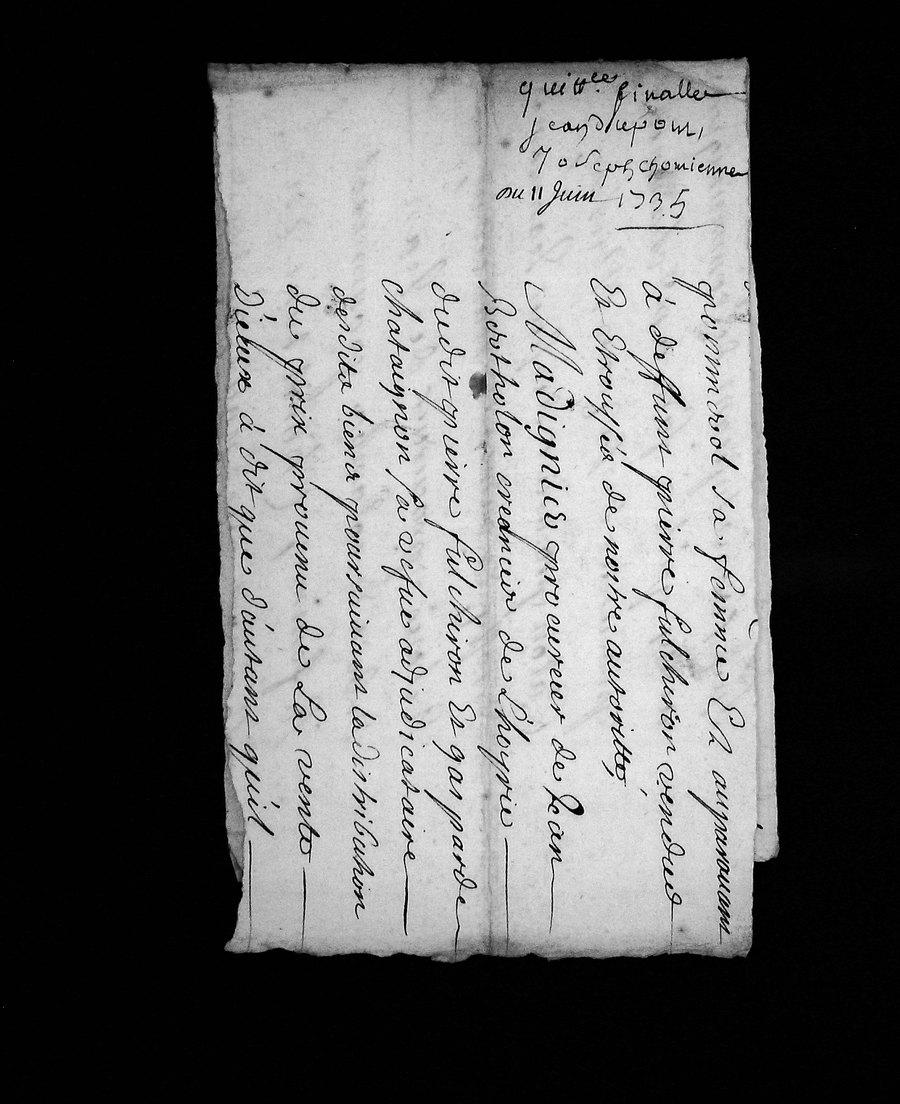 quitt.ce finalle
jean dupont,
Joseph chomienne
du 11 Juin 1735
pommerol sa femme Et auparauant
à deffunt pierre fulchiron vendus
Et Etroussés de nostre autoritté,
Madignier procureur de Jean
Bertholon creancier de L'hoyrie
dudit pierre fulchiron Et gasparde
chataignon sa vefue adjudicataire
desdits biens poursuiuant la distribution
du prix prouenu de La vente
D'iceux à dit que d'autant quil